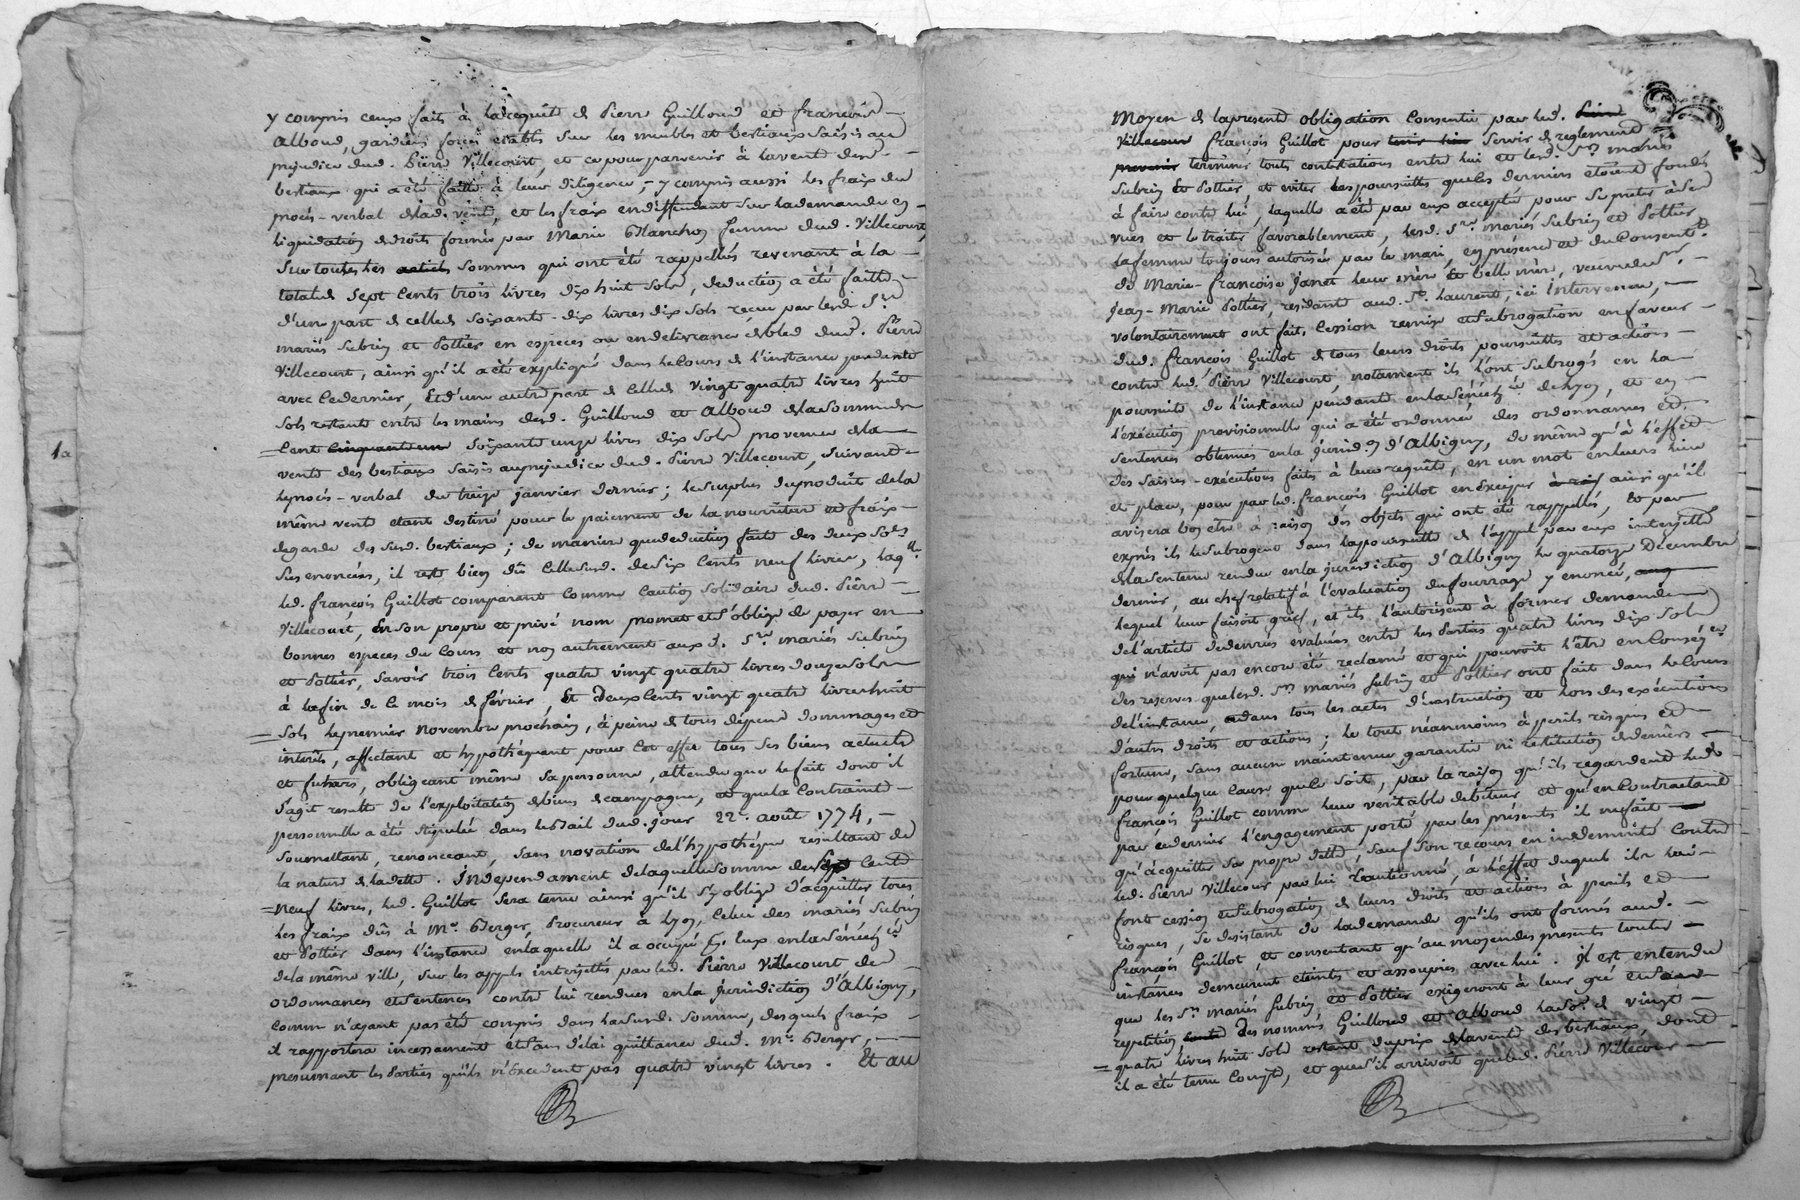 y compris ceux faits à la requête de Pierre Guilloud et françois
Alboud, gardiens forcés etablis sur les meubles et bestiaux saisis au
prejudice dud. Pierre Villecourt, et ce pour parvenir à la vente desd.
bestiaux qui a été faitte à leur diligence, y compris aussi les fraix du
procés-verbal de lad. vente, et les fraix en deffendant sur la demande en
liquidation de droits formée par Marie Blanchon femme dud. Villecourt,
sur toutes les sommes qui ont été rappellés revenant à la
totale de sept cents trois livres dix huit sols, deduction a été faitte
d'une part de celle de soixante-dix livres dix sols recue par lesd. Srs
mariés Subrin et Pottier en especes ou en delivrance de bled dud. Pierre
Villecourt, ainsi qu'il a été expliqué dans le cours de l'instance pendante
avec ce dernier, Et d'une autre part de celle de vingt quatre livres huit
sols restante entre les mains desd. Guilloud et Alboud de la somme de
Cent cinquante un soixante onze livres dix sols provenue de la
vente des bestiaux saisis au prejudice dud. Pierre Villecourt, suivant
le procés-verbal du treize janvier dernier; le surplus du produit de la
même vente etant destiné pour le paiement de la nourriture et fraix
de garde des susd. bestiaux; de maniere que deduction faite des deux Sols
sus enoncées, il reste bien dû celle susd. de six cents neuf livres, laqlle
led. françois Guillot comparant comme caution solidaire dud. Pierre
Villecourt, En son propre et privé nom promet et s'oblige de payer en
bonnes especes du Cours et non autrement aux d. Srs mariés Subrin
et Pottier, savoir trois cents quatre vingt quatre livres douze sols
à la fin de ce mois de février, Et deux cents vingt quatre livres huit
sols le premier novembre prochain, à peine de tous depens dommages et
interêts, affectant et hypothéquant pour cet effet tous ses biens actuels
et futurs, obligeant même sa personne, attendu que le fait dont il
s'agit resulte de l'exploitation de biens de campagne, et que la Contrainte
personnelle a été stipulée dans le Bail dud. jour 22e. août 1774,
soumettant, renonceant, sans novation de l'hypothéque resultant de
la nature de la dette. Independament de laquelle somme de six cents
neuf livres, led. Guillot sera tenu ainsi qu'il s'y oblige d'acquitter tous
les fraix dûs à Me. Berger, Procureur à Lyon, Celui des mariés Subrin
et Pottier dans l'instance en laquelle il a occupé pr. eux en la Sénéchée
de la même ville, sur les appels interjettés par led. Pierre Villecourt de
ordonnances et sentences contre lui rendues en la jurisdiction d'Albigny,
Comme n'ayant pas été compris dans la susd. somme, desquels fraix
il rapportera incessament et sans délai quittance dud. Me. Berger,
presumant les Parties qu'ils n'excedent pas quatre vingt livres. Et au
Moyen de la presente obligation Consentie par led. Pierre
Villecour françois Guillot pour servir de reglement
prevenir terminer toutes contestations entre lui et lesd. Srs mariés
Subrin Et Pottier, et eviter les poursuittes que les derniers étoient fondés
à faire contre lui, laquelle a été par eux acceptée pour se preter à ses
vues et le traiter favorablement, lesd. Srs. mariés Subrin et Pottier,
la femme toujours autorisée par le mari, en présence et du Consentt.
de Marie-françoise Janet leur mère Et belle mère, veuve du Sr.
Jean-Marie Pottier, residante aud. St. Laurent, ici Intervenue,
volontairement ont fait Cession remise et subrogation en faveur
dud. françois Guillot de tous leurs droits poursuittes et actions
contre led. Pierre Villecourt, notament ils l'ont subrogés en la
poursuite de l'instance pendante en la Sénéchée de Lyon, et en
l'exécution provisionnelle qui a été ordonnée des ordonnances et
sentences obtenues en la jurisdon d'Albigny, de même qu'à l'effet
des saisies-exécutions faites à leur requête, en un mot en leurs lieu
et place, pour par led. françois Guillot en exciper ainsi qu'il
avisera bon être à raison des objets qui ont été rappellés, Et par
exprés ils le subrogent dans la poursuitte de l'appel par eux interjetté
de la sentence rendue en la jurisdiction d'Albigny le quatorze Décembre
dernier, au chef relatif à l'évaluation du fourrage y enoncé,
lequel leur faisoit grief, et ils l'autorisent à former demande
de l'article de denrées evaluées entre les Parties quatre livres dix sols
qui n'avoit pas encore été reclamé et qui pourroit l'être en Conséqce
des reserves que lesd. Srs mariés Subrin et Pottier ont fait dans le Cours
de l'instance, dans tous les actes d'instruction et hors des exécutions
d'autres droits et actions; le tout néanmoins à perils risques et
fortune, sans aucun maintenue, garantie ni restitution de deniers
pour quelque cause que ce soit, par la raison qu'ils regardent led.
françois Guillot comme leur veritable débiteur et qu'en Contractant
par ce dernier l'engagement porté par les présentes il ne fait
qu'acquitter sa propre dette, sauf son recours en indemnité contre
led. Pierre Villecour par lui Cautionné, à l'effet duquel ils lui
font cession et subrogation de leurs droits et actions à perils et
risques, se desistant de la demande qu'ils ont formés aud.
françois Guillot, et consentant qu'au moyen des presentes toutes
instances demeurent eteintes et assoupies avec lui. Il est entendu
que les Srs mariés Subrin et Pottier exigeront à leur gré et sans
repetition des nommés Guilloud et Alboud la Soe. de vingt
quatre livres huit sols restante du prix de la vente des bestiaux, dont
il a été tenu Compte, et que s'il arrivoit que led. Pierre Villecour